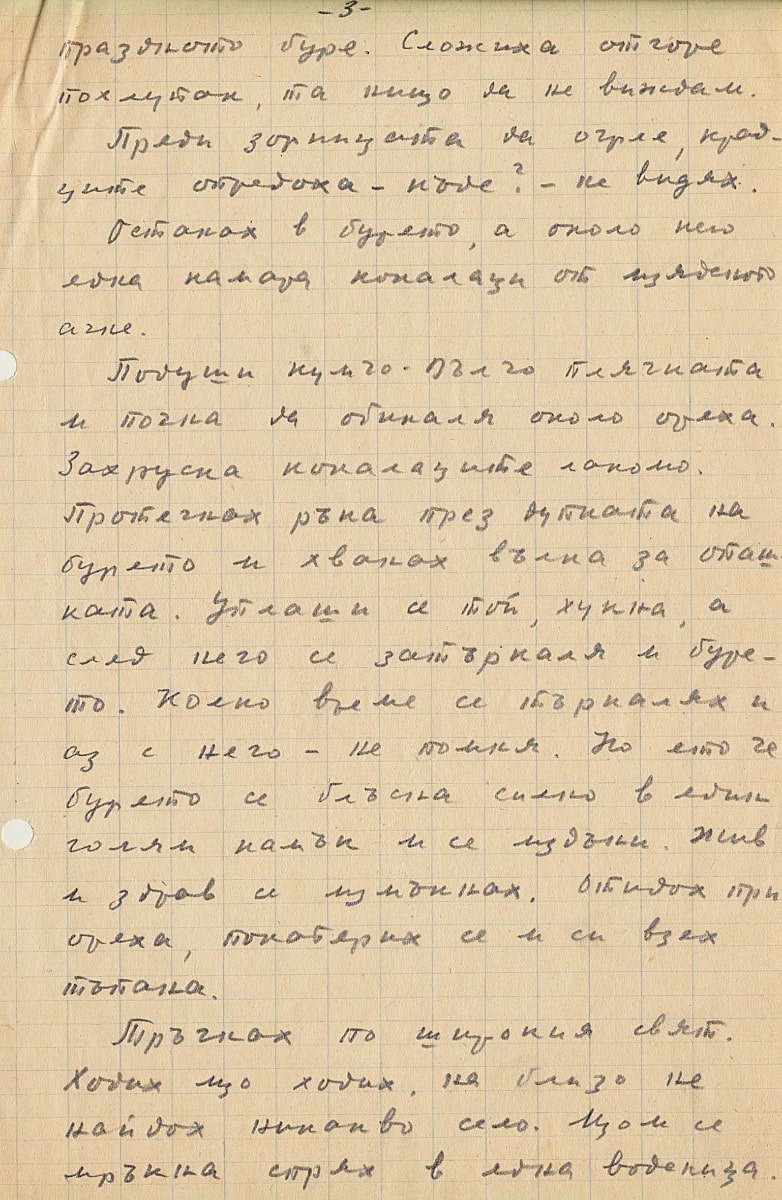 -3-
празното буре. Сложиха отгоре
похлупак, та нищо да не виждам.
Преди зорницата да огрее, крад-
ците отредоха - къде? - не видях.
Останах в бурето, а около него
една камара кокалаци от изяденото
агне.
Подуши кумчо-Вълчо плячката
и почна да обикаля около ореха.
Захруска кокалаците лакомо.
Протегнах ръка през дупката на
бурето и хванах вълка за опаш
ката. Уплаши се той, хукна, а
след него се затъркаля и буре-
то. Колко време се търкалях и
аз с него - не помня. Но ето че
бурето се блъсна силно в един
голям камък и се издъни. Жив
и здрав се измъкнах. Отидох при
ореха, покатерих се и си взех
тъпана.
Тръгнах по широкия свят.
Ходих що ходих, на близо не
найдох никакво село. Щом се
мръкна спрях в една воденица.